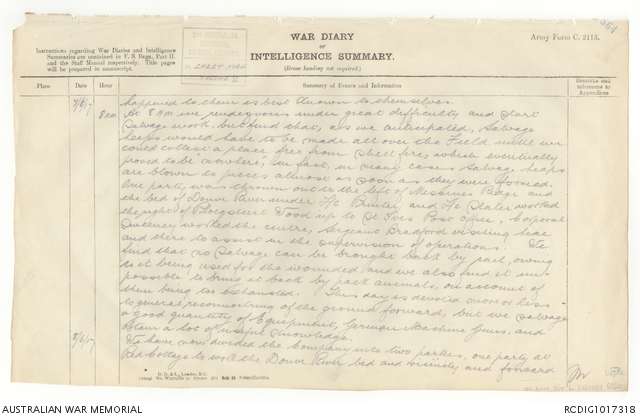 WAR DIARY
or
INTELLIGENCE SUMMARY.
(Erase heading not required.)
Army Form C. 2118.
Instructions regarding War Diaries and Intelligence
Summaries are contained in F. S. Regs., Part II.
and the Staff Manual respectively. Title pages
will be prepared in manuscript.
Place
Date
Hour
Summary of Events and Information
Remarks and
references to
Appendices
happened to them is best known to themselves.
At 8 AM we rendezvous under great difficulty and start
Salvage work, but find that, as we anticipated, Salvage
heaps would have to be made all over the Field until we
could collect a place free from shell fire, which eventually
proved to be nowhere, in fact, in many cases Salvage heaps
are blown to pieces almost as soon as they were formed.
One party was thrown out to the left of Messines Ridge and
the bed of Douve River under Lt. and Lt. Slater worked
the right of Ploegsteert Wood up to St Yves Post Office, Corporal
worked the centre, Sergeant Bradford visiting here
and there to assist in the supervision of operations. We
find that no Salvage can be brought back by rail, owing
to it being used for the wounded and we also find it
possible to bring it back by pack animals, on account of
them being too exhausted. This day is devoted more or less
to general reconnoitring of the ground forward, but we salvage
a good quantity of Equipment, German Machine Guns, and
obtain a lot of useful knowledge.
To have now divided the Company into two parties, one party at
Red Cottage to work the Douve River bed and vicinity and forward
8 AM
RCDIG1017318
AUSTRALIAN WAR MEMORIAL